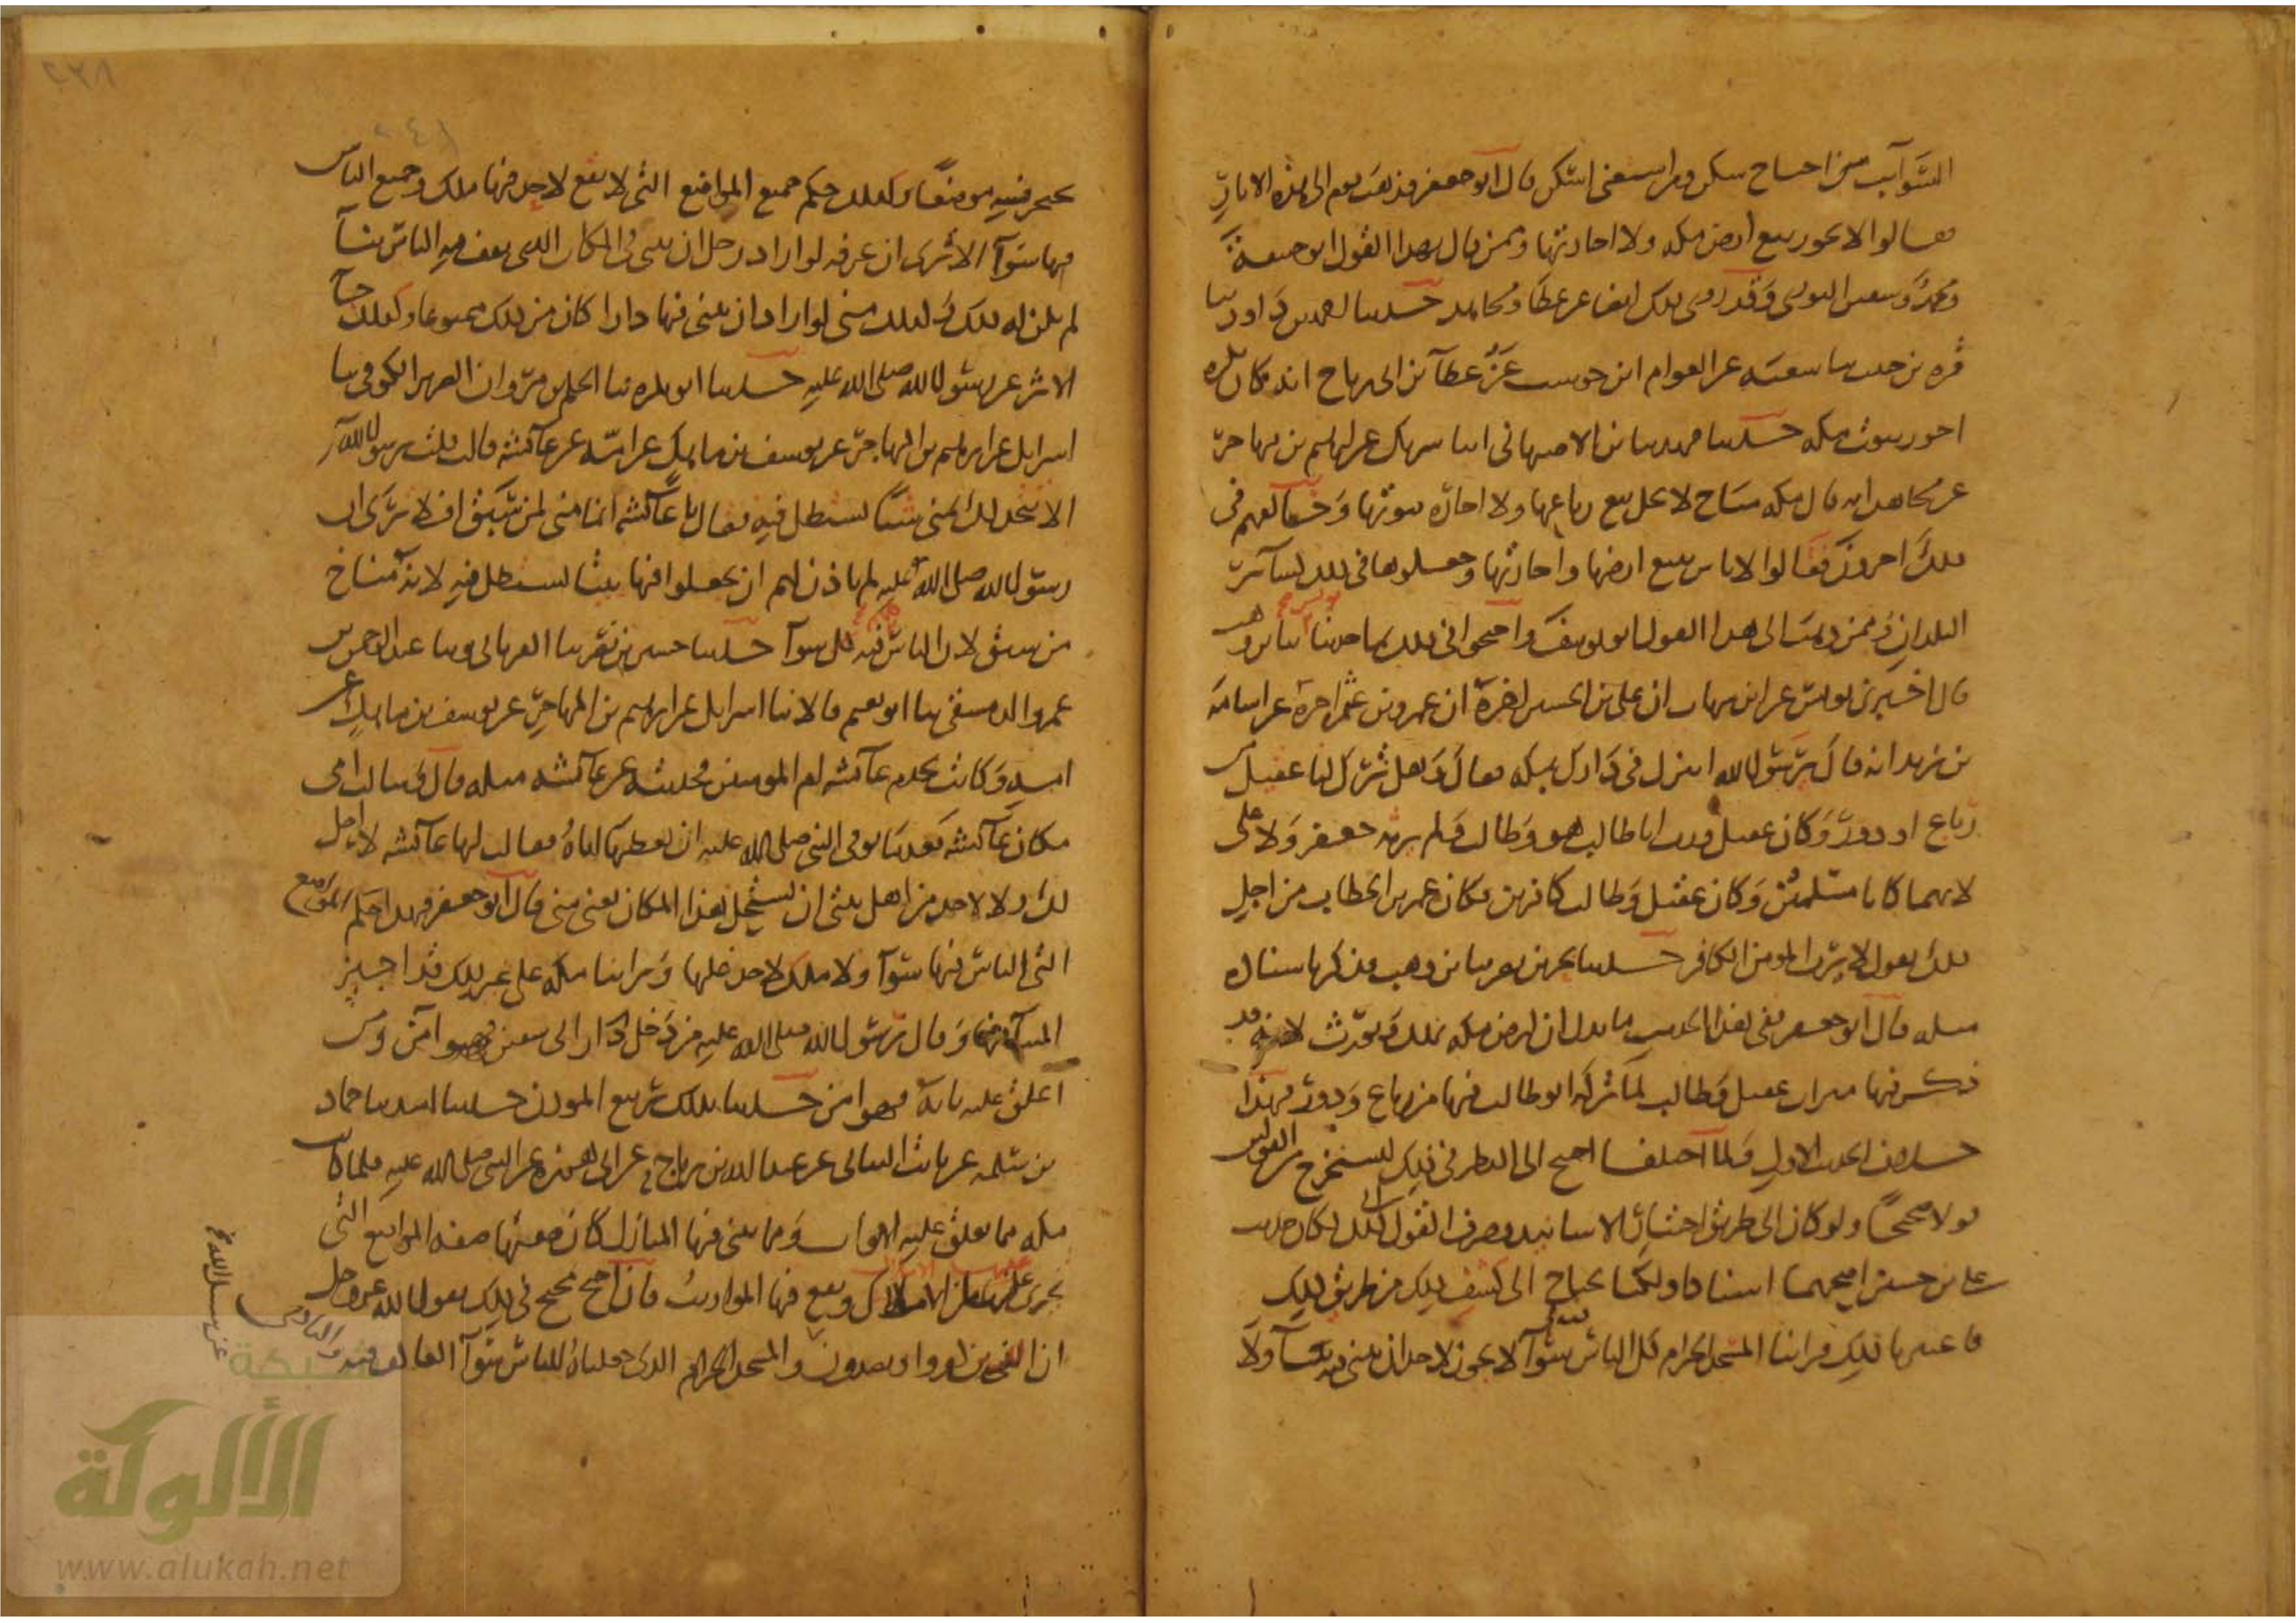 السوائب من احتاج سكن ومن استغنى اسكن قال ابو جعفر فذهب قوم الى هذه الاثار
فقالوا لا يجوز بيع ارض مكه ولا اجارتها وممن قال بهذا القول ابو حنيفة
ومحمد وسفين الثوري وقد روي ذلك ايضا عن عطا ومجاهد حدثنا احمد بن داود ثنا
عن العوام ابن حوشب عن عطآ بن ابي رباح انه كان يكره
اجور بيوت مكه حدثنا فهد ثنا ابن الاصبهاني انا شريك عن ابرهيم بن مهاجر
عن مجاهد انه قال مكه مباح لا يحل بيع رباعها ولا اجاره بيوتها وخالفهم في
ذلك اخرون فقالوا لا باس ببيع ارضها واجارتها وجعلوها في ذلك كسآئر
البلدان وممن ذهب الى هذا القول ابو يوسف واحتجوا في ذلك بما حدثنا يونس انا ابن وهب
قال اخبرني يونس عن ابن شهاب ان علي بن الحسين اخبره ان عمرو بن عثمن اخبره عن اسامه
بن زيد انه قال يرسول الله اتنزل في دارك بمكه فقال وهل ترك لنا عقيل من
رباع او دور وكان عقيل ورث ابا طالب هو وطالب ولم يرثه جعفر ولا علي
لانهما كانا مسلمين وكان عقيل وطالب كافرين فكان عمر بن الخطاب من اجل
ذلك يقول لا يرث المومن الكافر حدثنا بحر بن نصر ثنا ابن وهب فذكر باسناده
مثله قال ابو جعفر ففي هذا الحديث ما يدل ان ارض مكه تملك وتورث لانه قد
ذكر فيها ميراث عقيل وطالب لما تركه ابو طالب فيها من رباع ودور فهذا
خلاف الحديث الاول ولما اختلفا احتيج الى النظر في ذلك ليستخرج من القولين
قولا صحيحا ولو كان الى طريق اختيار الاسانيد وصرف القول الى ذلك لكان حديث
علي بن حسين اصحهما اسنادا ولكنا نحتاج الى كشف ذلك من طريق النظر
فاعتبرنا ذلك فراينا المسجد الحرام كل الناس فيه سوآ لا يجوز لاحد ان يبني فيه بنآ ولا
يحتجر منه موضعا وكذلك حكم جميع المواضع التي لا يقع لاحد فيها ملك وجميع الناس
فيها سوآ الا ترى ان عرفه لو اراد رجل ان يبني في المكان الذي يقف فيه الناس بنآ
لم يكن له ذلك وكذلك منى لو اراد ان يبني فيها دارا كان من ذلك ممنوعا وكذلك جآ
الاثر عن رسول الله صلى الله عليه حدثنا ابو بكره ثنا الحكم بن مروان الضرير الكوفي ثنا
اسرايل عن ابرهيم بن المهاجر عن يوسف بن ماهك عن امه عن عآئشه قالت قلت يرسول الله
الا نتخذ لك بمنى شيئا تستظل فيه فقال يا عآئشه انها منى لمن سبق افلا ترى ان
رسول الله صلى الله عليه لم ياذن لهم ان يجعلوا فيها بيتا تستظل فيه لانه مناخ
من سبق لان الناس فيه كلهم سوآ حدثنا حسين بن نصر ثنا الفريابي وثنا عبد الرحمن بن
عمرو الدمشقي ثنا ابو نعيم قالا ثنا اسرايل عن ابرهيم بن المهاجر عن يوسف بن ماهك عن
امه وكانت تخدم عآئشه ام المومنين فحدثته عن عآئشه مثله قال وسالت امي
مكان عآئشه بعد ما توفى النبي صلى الله عليه ان تعطيها اياه فقالت لها عآئشه لا احل
لك ولا لاحد من اهل بيتي ان يستحل هذا المكان يعني منى قال ابو جعفر فهذا حكم المواضع
التي الناس فيها سوآ ولا ملك لاحد عليها وراينا مكه على غير ذلك قد اجيز
البنآ فيها وقال رسول الله صلى الله عليه من دخل دار ابي سفين فهو آمن ومن
اغلق عليه بابه فهو امن حدثنا بذلك ربيع الموذن حدثنا اسد ثنا حماد
بن سلمه عن ثابت البناني عن عبد الله بن رباح عن ابي هريره عن النبي صلى الله عليه فلما كانت
مكه مما تغلق عليه الابواب ومما يبنى فيها المنازل كان صفتها صفه المواضع التي
يجري عليها الاملاك ويقع فيها المواريث فان احتج محتج في ذلك بقول الله عز وجل
ان الذين كفروا ويصدون عن سبيل الله والمسجد الحرام الذي جعلناه للناس سوآ العاكف فيه والباد
شبكة
الألوكة
www.alukah.net